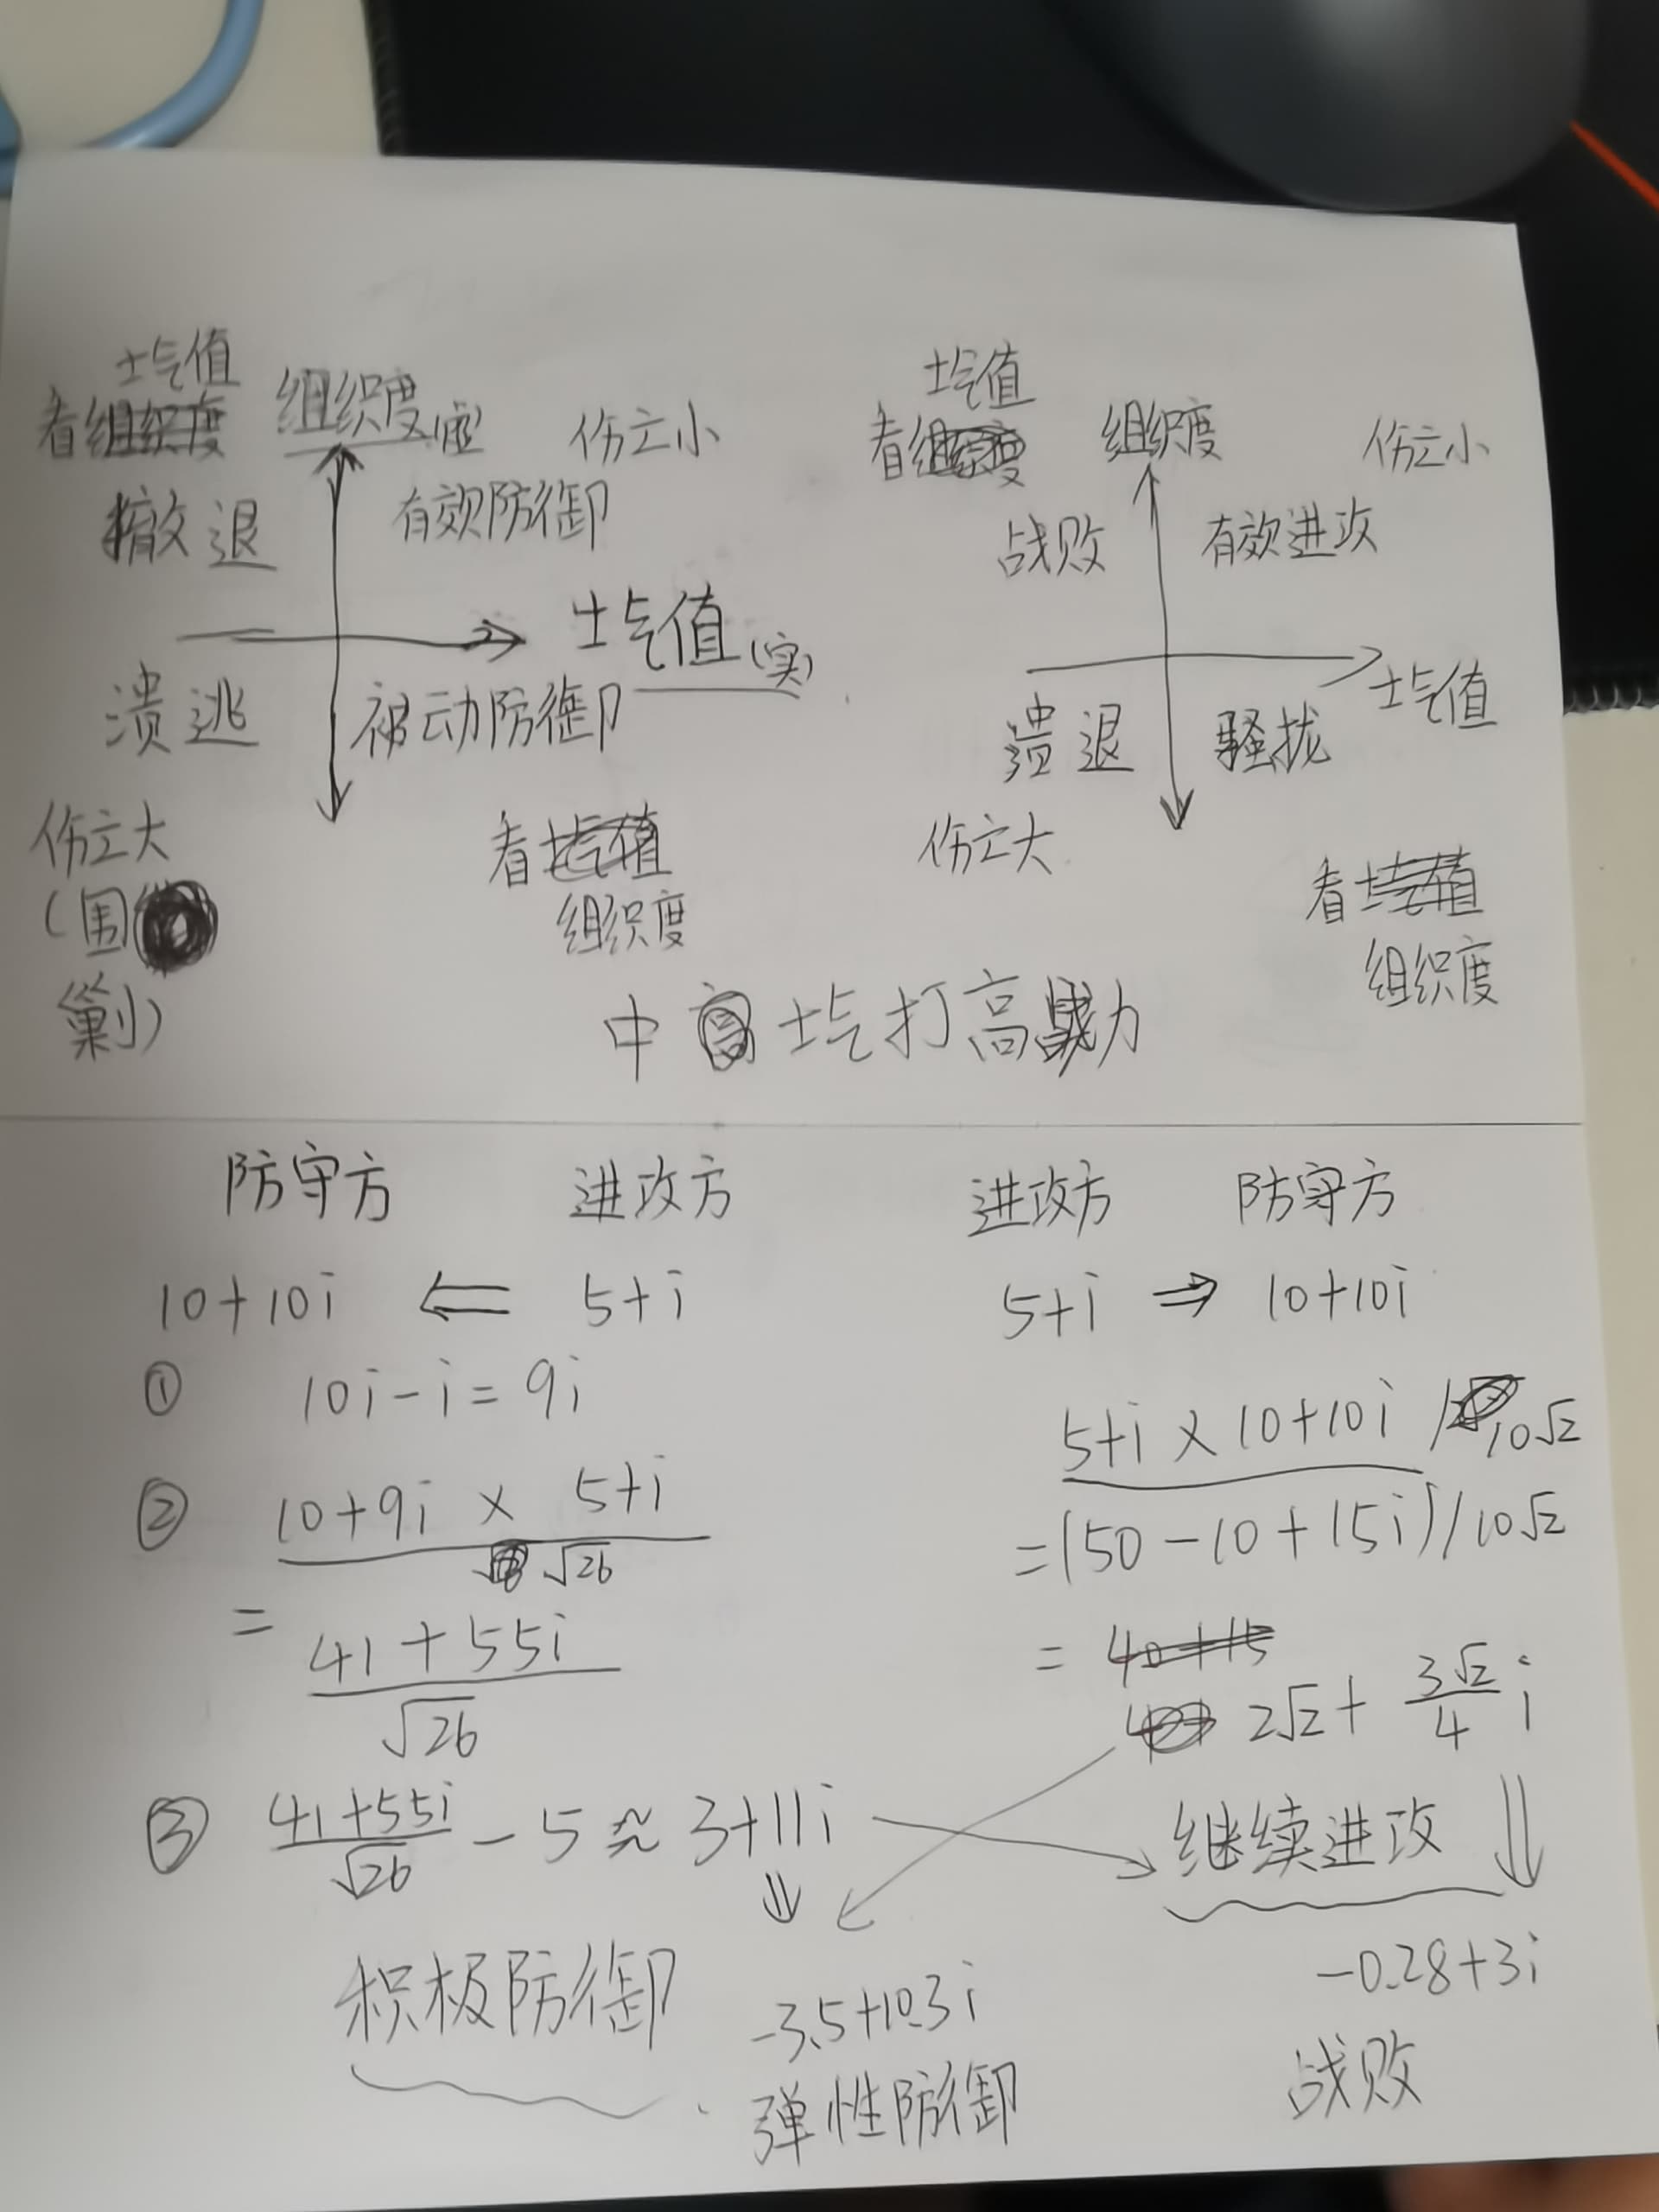 士气值
看 组织度(虚) 伤亡小
撤退 有效防御
士气值(实)
溃逃 被动防御
伤亡大 看
(围 组织度
剿)
士气值
看 组织度 伤亡小
战败 有效进攻
士气值
溃退 骚扰
伤亡大 看
组织度
中 士气打高
防守方 进攻方
10+10i ⇐ 5+i
① 10i-i=9i
② 10+9i × 5+i
√26
= 41+55i
√26
③ 41+55i
√26
-5≈3+11i
⇓
积极防御
-3.5+10.3i
弹性防御
进攻方 防守方
5+i ⇒ 10+10i
5+i × 10+10i /10√2
=(50-10+15i)/10√2
=
2√2+ 3√2
4
i
继续进攻 ⇓
-0.28+3i
战败